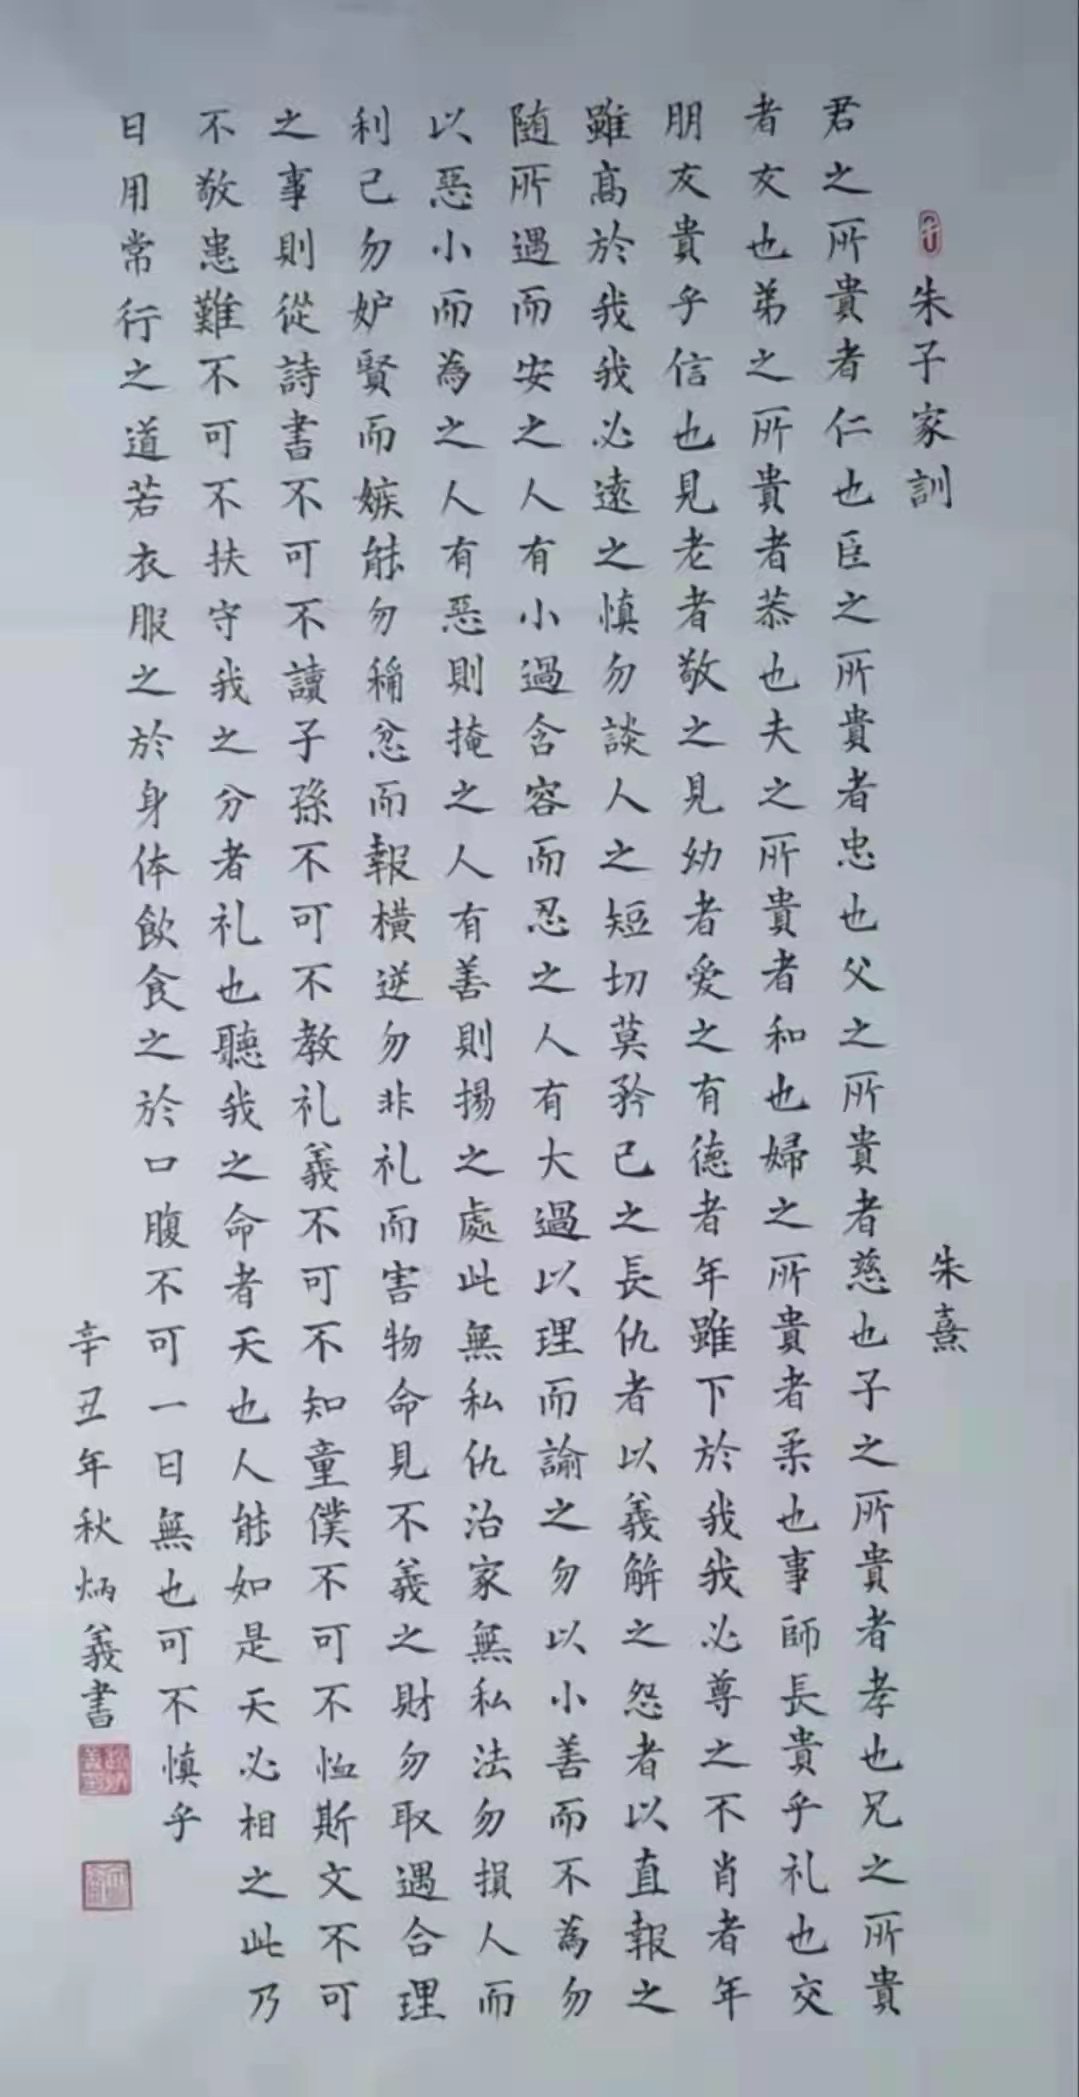 朱子家訓 朱熹
君之所貴者仁也臣之所貴者忠也父之所貴者慈也子之所貴者孝也兄之所貴
者友也弟之所貴者恭也夫之所貴者和也婦之所貴者柔也事師長貴乎礼也交
朋友貴乎信也見老者敬之見幼者愛之有德者年雖下於我我必尊之不肖者年
雖高於我我必遠之慎勿談人之短切莫矜己之長仇者以義解之怨者以直報之
随所遇而安之人有小過含容而忍之人有大過以理而諭之勿以小善而不為勿
以惡小而為之人有惡則掩之人有善則揚之處此無私仇治家無私法勿損人而
利己勿妒賢而嫉能勿稱忿而報橫逆勿非礼而害物命見不義之財勿取遇合理
之事則從詩書不可不讀子孫不可不教礼義不可不知童僕不可不恤斯文不可
不敬患難不可不扶守我之分者礼也聽我之命者天也人能如是天必相之此乃
日用常行之道若衣服之於身体飲食之於口腹不可一日無也可不慎乎
辛丑年秋炳義書